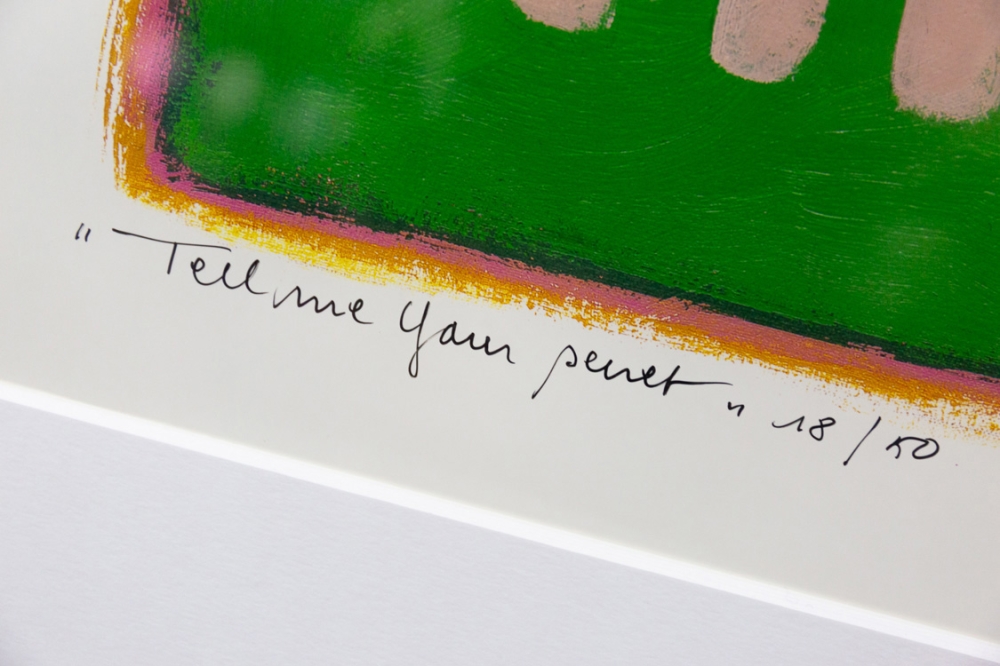 "Tell me your secret" 18/50